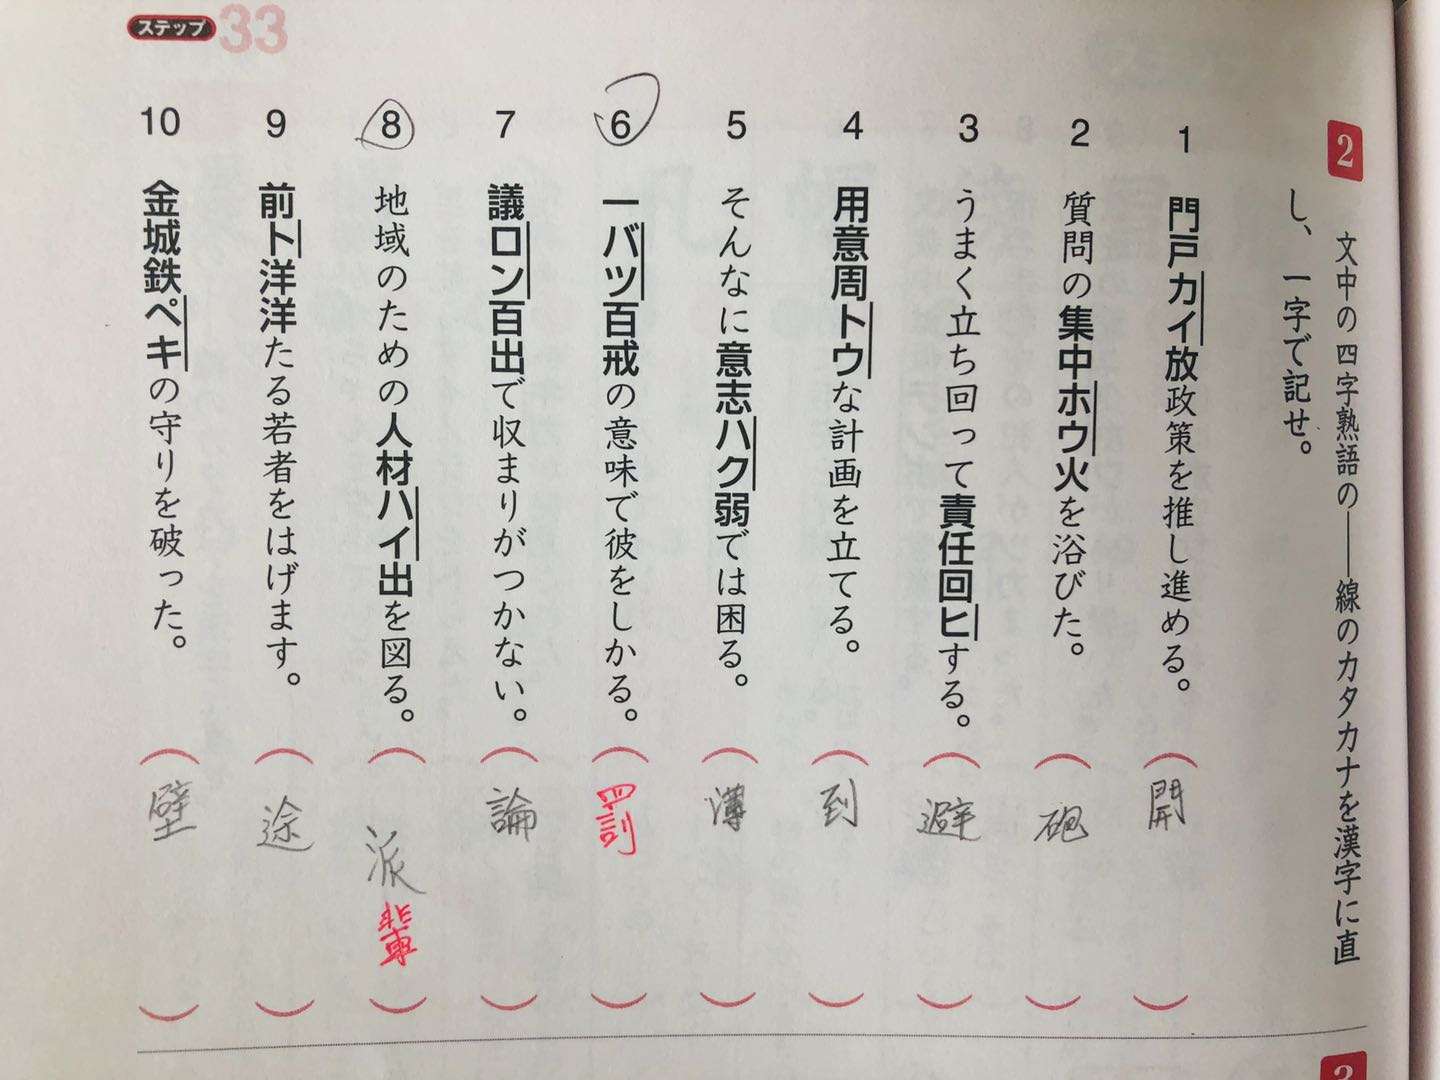 ステップ 33
2 文中の四字熟語の――線のカタカナを漢字に直
し、一字で記せ。
1 門戸カイ放政策を推し進める。(開)
2 質問の集中ホウ火を浴びた。(砲)
3 うまく立ち回って責任回ヒする。(避)
4 用意周トウな計画を立てる。(到)
5 そんなに意志ハク弱では困る。(薄)
6 一バツ百戒の意味で彼をしかる。(罰)
7 議ロン百出で収まりがつかない。(論)
8 地域のための人材ハイ出を図る。(派 輩)
9 前ト洋洋たる若者をはげます。(途)
10 金城鉄ペキの守りを破った。(壁)
3